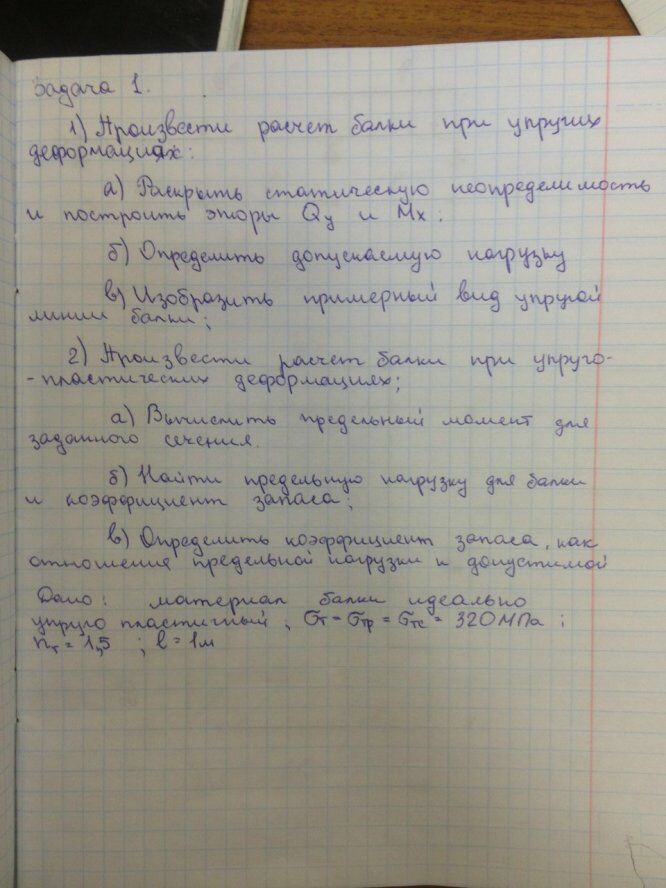 Задача 1.
1) Произвести расчет балки при упругих
деформациях:
а) Раскрыть статическую неопределимость
и построить эпюры Qy и Mx:
б) Определить допускаемую нагрузку
в) Изобразить примерный вид упругой
линии балки;
2) Произвести расчет балки при упруго-
-пластических деформациях;
а) Вычислить предельный момент для
заданного сечения.
б) Найти предельную нагрузку для балки
и коэффициент запаса;
в) Определить коэффициент запаса, как
отношения предельной нагрузки к допустимой
Дано: материал балки идеально
упруго пластичный; σт = σтр = σтс = 320 МПа;
nт = 1,5 ; l = 1м